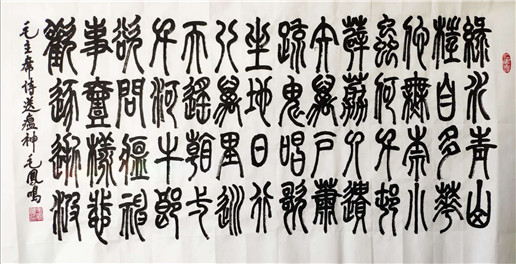 綠水青山
枉自多華
佗無奈小
蟲何千邨
薜荔人遺
矢萬戶蕭
疏鬼唱歌
坐地日行
八萬里巡
天遙看一
千河牛郎
欲問瘟神
事壹樣悲
歡逐逝波
毛主席詩送瘟神 毛鳳鳴